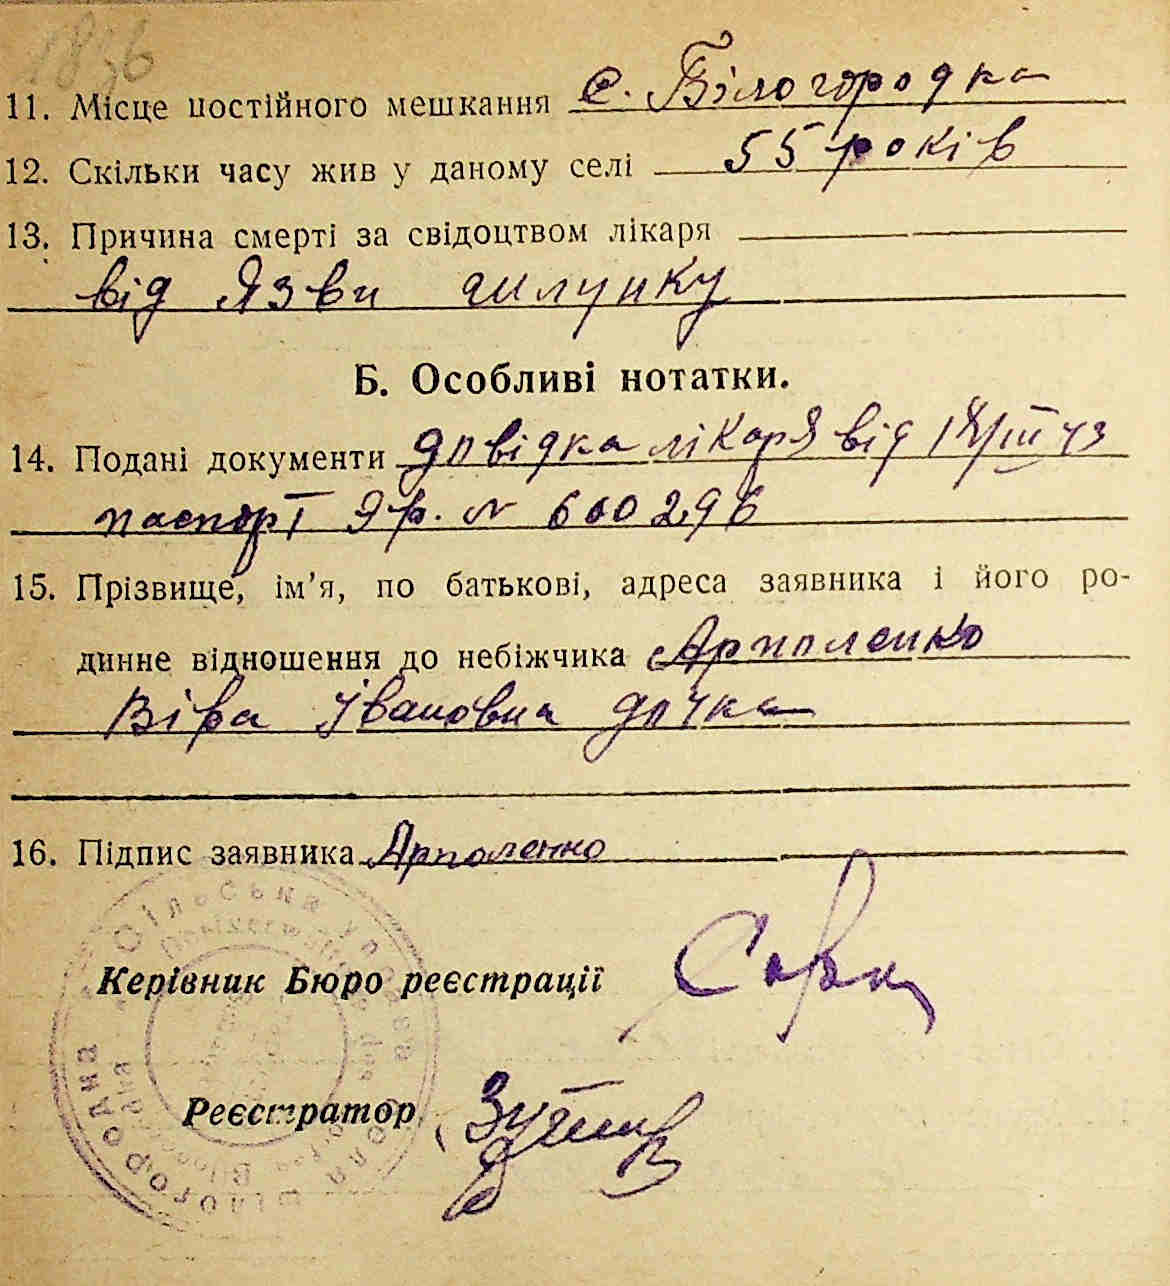 1836
11. Місце постійного мешкання с. Білогородка
12. Скільки часу жив у даному селі 55 років
13. Причина смерті за свідоцтвом лікаря
від Язви шлунку
Б. Особливі нотатки.
14. Подані документи довідка лікаря від 18/III 43
паспорт Яр. № 600296
15. Прізвище, ім’я, по батькові, адреса заявника і його ро-
динне відношення до небіжчика Ярмоленко
Віра Івановна дочка
16. Підпис заявника Ярмоленко
Керівник Бюро реєстрації
Реєстратор
Сільська управа
Білогородка